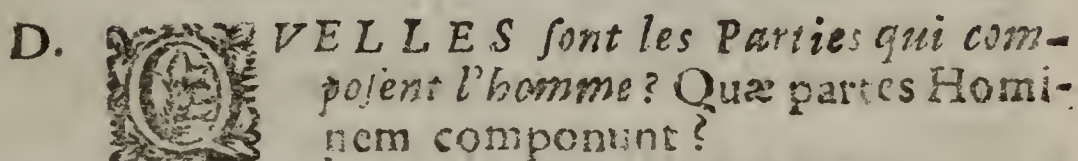 D. QVELLES ſont les Parties qui com-
poſent l'homme? Quæ partes Homi-
nem componunt?